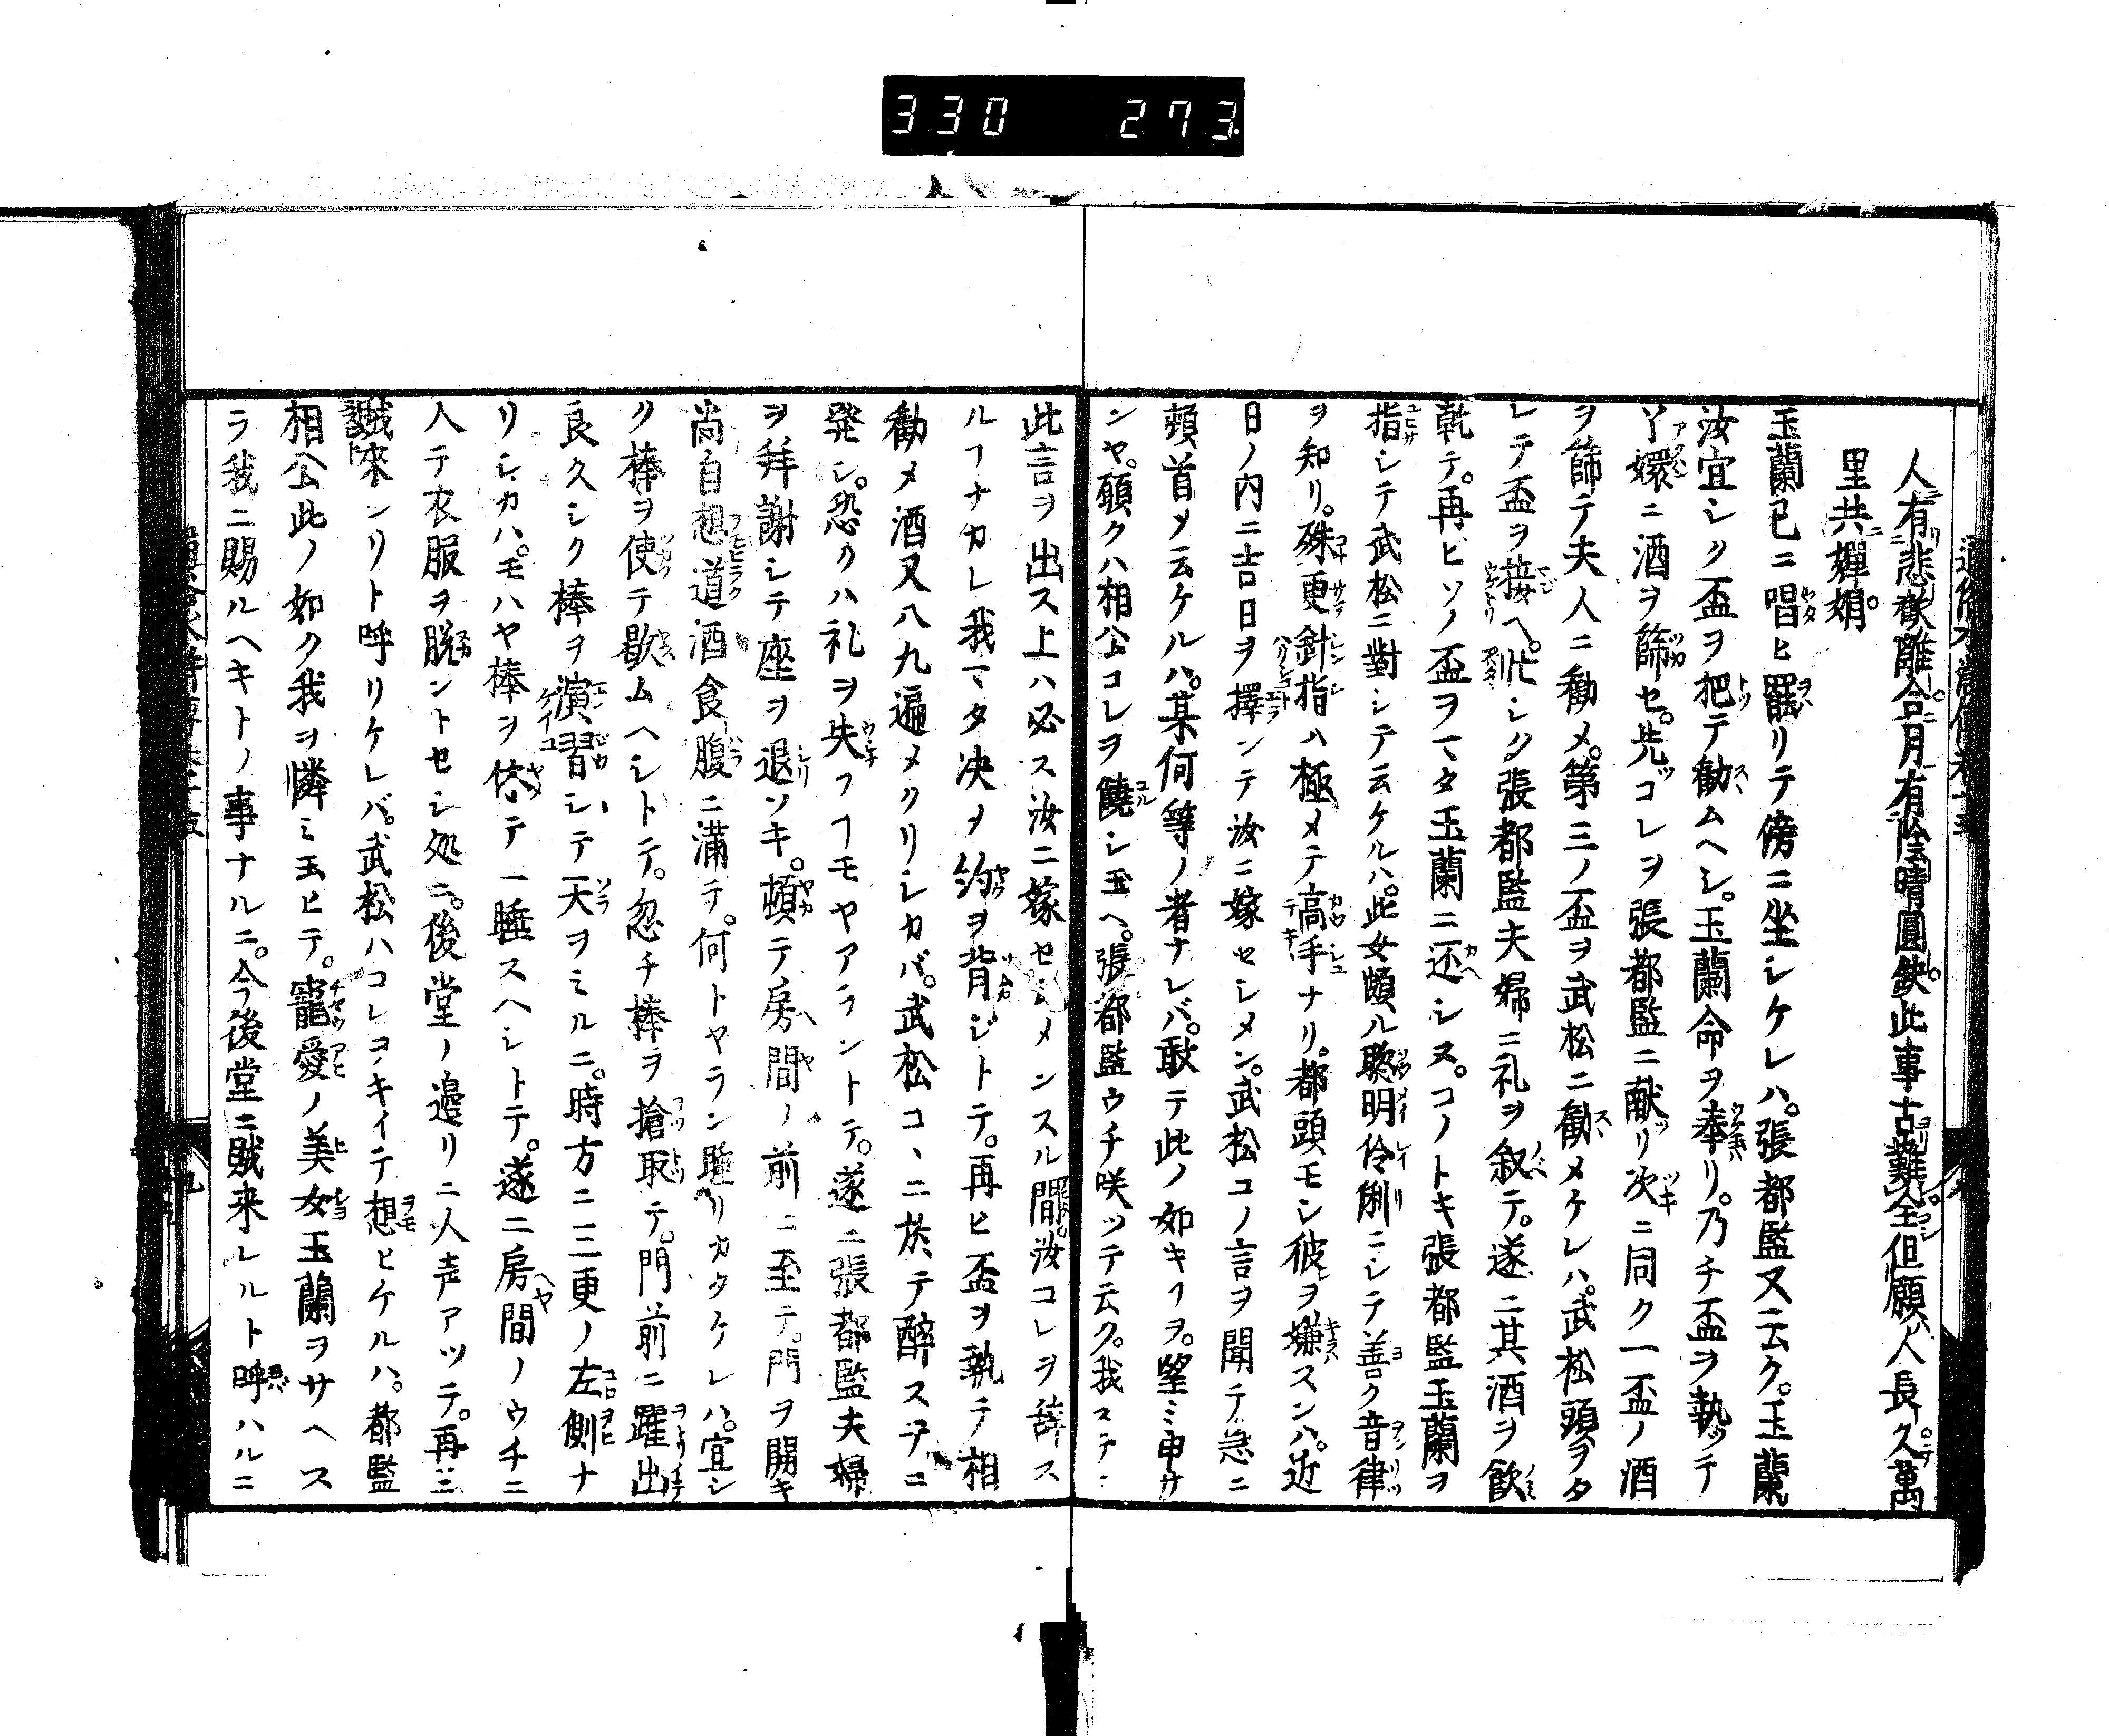 330 273
人有悲歡離合月有陰晴圓缺此事古難全但願人長久萬
里共嬋娟
玉蘭已ニ唱ヒ罷リテ傍ニ坐シケレハ張都監又云ク玉蘭
汝宜シク盃ヲ把テ勸ムヘシ玉蘭命ヲ奉リ乃チ盃ヲ執ッテ
丫嬛ニ酒ヲ篩セ先ッコレヲ張都監ニ献リ次ニ同ク一盃ノ酒
ヲ篩テ夫人ニ勸メ第三ノ盃ヲ武松ニ勸メケレハ武松頭ヲタ
レテ盃ヲ接ヘ忙シク張都監夫婦ニ礼ヲ叙テ遂ニ其酒ヲ飲
乾テ再ビソノ盃ヲマタ玉蘭ニ还シヌコノトキ張都監玉蘭ヲ
指シテ武松ニ對シテ云ケルハ此女頗ル聡明伶俐ニシテ善ク音律
ヲ知リ殊更針指ハ極メテ高手ナリ都頭モシ彼ヲ嫌スンハ近
日ノ内ニ吉日ヲ擇ンテ汝ニ嫁セシメン武松コノ言ヲ聞テ急ニ
頓首メ云ケルハ某何等ノ者ナレバ敢テ此ノ如キヿヲ望ミ申サ
ンヤ願クハ相公コレヲ饒シ玉ヘ張都監ウチ咲ッテ云ク我ステニ
此言ヲ出ス上ハ必ス汝ニ嫁セシメンスル間汝コレヲ辞ス
ルヿナカレ我マタ决メ約ヲ背ジトテ再ヒ盃ヲ執テ相
勸メ酒又八九遍メクリシカバ武松コヽニ於テ醉ステニ
発シ恐クハ礼ヲ失フヿモヤアラントテ遂ニ張都監夫婦
ヲ拜謝シテ座ヲ退ソキ頓テ房間ノ前ニ至テ門ヲ開キ
尚自想道酒食腹ニ満テ何トヤラン睡リカタケレハ宜シ
ク棒ヲ使テ歇ムヘシトテ忽チ棒ヲ搶取テ門前ニ躍出
良久シク棒ヲ演習シテ天ヲミルニ時方ニ三更ノ左側ナ
リシカハモハヤ棒ヲ休テ一睡スヘシトテ遂ニ房間ノウチニ
入テ衣服ヲ脱ントセシ処ニ後堂ノ邉リニ人声アツテ再三
賊來ンリト呼リケレバ武松ハコレヲキイテ想ヒケルハ都監
相公此ノ如ク我ヲ憐ミ玉ヒテ寵愛ノ美女玉蘭ヲサヘス
ラ我ニ賜ルヘキトノ事ナルニ今後堂ニ賊来レルト呼ハルニ